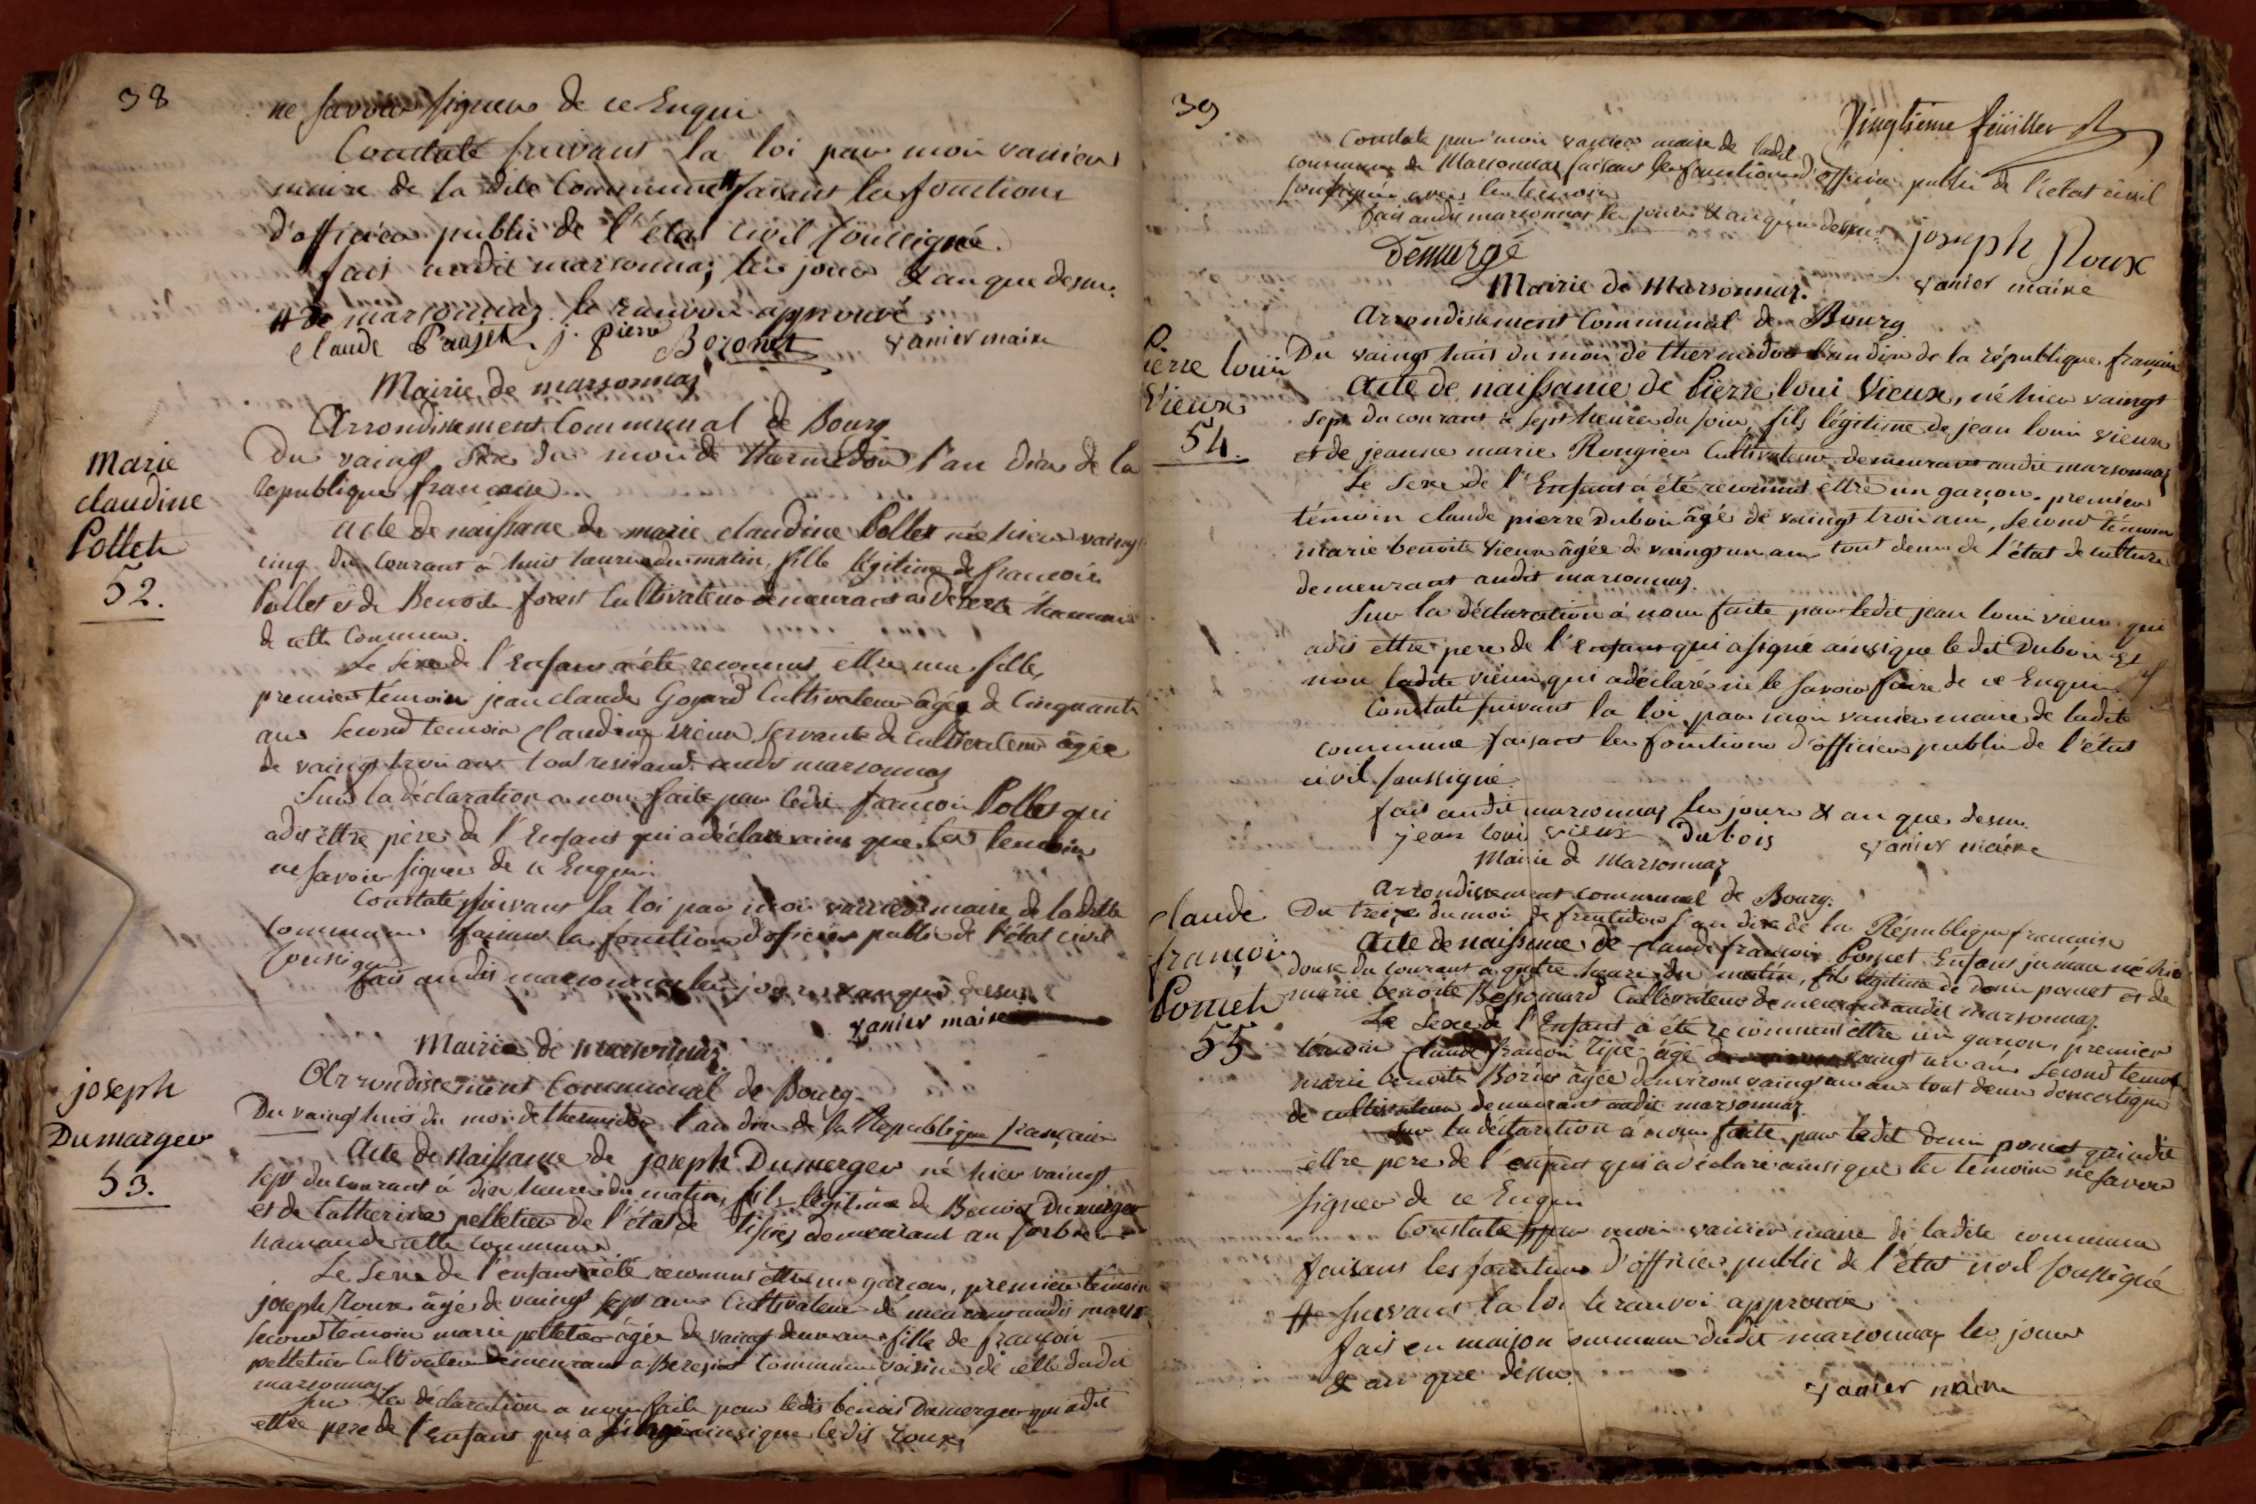 38
ne savoir signer de ce Enqui
Constaté suivant la loi par moi vanier
maire de la dite Commune # faisant les fonctions
d'officier public de l'état civil soussigné.
fait audit marsonnaz les jour & an que dessus.
# de marsonnaz le ranvoi approuvé
Claude j. pierre Bozonet vanier maire
Mairie de marsonnaz
Arrondissement Communal de Bourg
Marie
claudine
Pollet
52.
Du vaingt six du moi de thermidor l'an dix de la
republique francaise
acte de naissance de marie claudine Pollet née hier vaingt
cinq du Courant à huit heures du matin, fille légitime de francois
Pollet et de Benoite Cultivateur demeurant au hameau
de cette Commune.
Le sexe de l'Enfant a été reconnut ettre une fille,
premier témoin jean claude Goyard Cultivateur âgé de Cinquante
ans second temoin claudine vieux servante de cultivateur âgée
de vaingt troi ans tout residant audit marsonnaz
Sur la déclaration a nous faite par ledit francoi Pollet qui
a dit ettre père de l'Enfant qui a déclaré ainsi que les temoins
ne savoir signer de ce Enquis.
Constaté suivant la loi par moi vanier maire de ladite
Commune faisant les fonctions d'officier public de l'état civil
soussigné
fait audit marsonnaz les jour & an que dessus
vanier maire
Mairie de marsonnaz
Arrondissement Communal de Bourg
joseph
Dumarger
53.
Du vaingt huit du moi de thermidor l'an dix de la Republique française
Acte de Naissance de joseph Dumerger né hier vaingt
sept du courant à dix heures du matin, fils légitime de Benoit Dumerger
et de Catherine pelletier de l'état de demeurant au
hameau de cette commune
Le sexe de l'enfant a été reconnut ettre un garcon, premier témoin
joseph roux âgé de vaingt sept ans Cultivateur demeurant audit marso
second témoin marie pelletier âgée de vaingt deux ans fille de françoi
pelletier Cultivateur demeurant a Bereziat Commune voisine de celle dudit
marsonnaz
sur la déclaration a nous faite par ledit benoit Dumerger qui a dit
ettre pere de l'Enfant qui a signé ainsi que ledit roux,
39
Vingtieme feuillet
Constaté par moi vanier maire de ladite
commune de Marsonnaz faisant les fonctions d'officier public de l'état civil
soussigné avec les temoin
fait audit marsonnaz les jour & an que dessus
Démurgé joseph Roux
vanier maire
Mairie de Marsonnaz.
Arrondissement Communal de Bourg
Pierre loui
Vieux
54.
Du vaingt huit du moi de thermidor l'an dix de la république française
Acte de naissance de Pierre loui Vieux, né hier vaingt
sept du courant à sept heures du soir, fils légitime de jean loui vieux
et de jeanne marie Rongier Cultivateur demeurant audit marsonnaz
Le Sexe de l'Enfant a été reconnut ettre un garçon. premier
témoin claude pierre Duboi âgé de vaingt troi ans, second témoin
marie benoite vieux âgée de vaingt un ans tout deux de l'état de culture
demeurant audit marsonnaz.
Sur la déclaration à nous faite par ledit jean loui vieux qui
a dit ettre pere de l'Enfant qui a signé ainsi que le dit Duboi et
non ladite vieux qui a déclaré ne le savoir faire de ce Enquis
Constaté suivant la loi par moi vanier maire de ladite
commune faisant les fonctions d'officier public de l'état
civil soussigné
fait audit marsonnaz les jour & an que dessus.
jean loui vieux dubois vanier maire
Mairie de Marsonnaz
Arrondissement communal de Bourg.
claude
françoi
Pomet
55
Du treize du moi de fructidor l'an dix de la République francaise
Acte de naissance de Claude françoi Pomet Enfant jumau né hier
douse du Courant a quatre heures du matin, fils légitime de Deni pomet et de
marie benoite Cultivateur demeurant audit marsonnaz.
Le Sexe de l'Enfant a été reconnut ettre un garcon, premier
témoin Claude françoi Tipe âgé vaingt un ans second temoin
marie benoite âgée denviron vaingt un ans tout deux domestique
de cultivateur demeurant audit marsonnaz.
sur la déclaration à nous faite par ledit Deni pomet qui a dit
ettre pere de l'enfant qui a déclaré ainsi que les témoin ne savoir
signer de ce Enquis
Constaté # par moi vanier maire de ladite commune
faisant les fonctions d'officier public de l'état civil soussigné
# suivant la loi le ranvoi approuvé
fait en maison commune dudit marsonnaz les jour
& an que dessus.
vanier maire